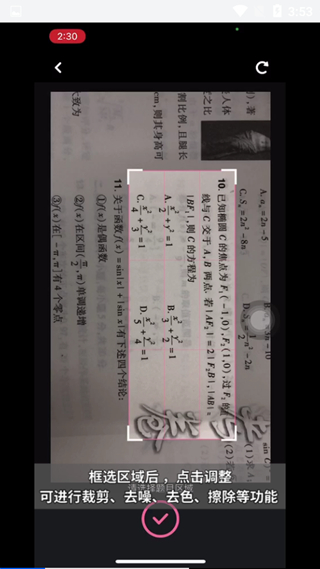 3:53
2:30
), 著
人体
度之比
割比例, 且腿长
cm, 则其身高可
大致为
A. aₙ=2n-5
C. Sₙ=2n²-8n
D. Sₙ=1/2n²-2n
10. 已知椭圆C的焦点为F₁(-1,0), F₂(1,0), 过F₂的
线与C交于A, B两点. 若|AF₂|=2|F₂B|, |AB|=
|BF₁|, 则C的方程为
A. x²/2+y²=1 B. x²/3+y²/2=1
C. x²/4+y²/3=1 D. x²/5+y²/4=1
11. 关于函数f(x)=sin|x|+|sin x|有下述四个结论:
①f(x)是偶函数
②f(x)在区间(π/2,π)单调递增
③f(x)在[-π,π]有4个零点
(1)求A
框选区域后，点击调整
可进行裁剪、去噪、去色、擦除等功能
请选择题目区域